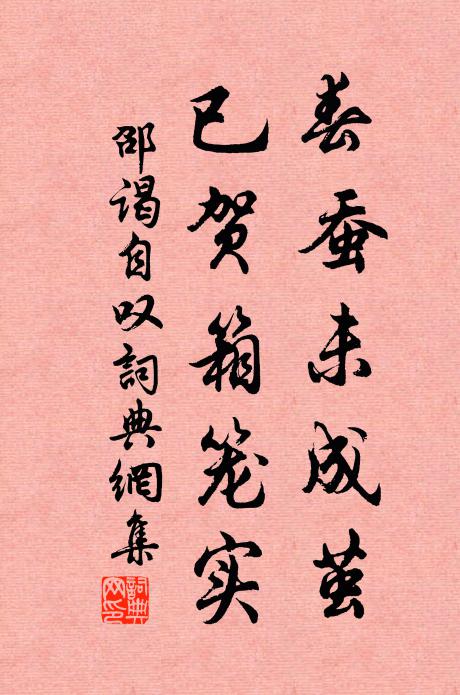 春蚕未成茧
已贺箱笼实
邵谒自叹詞典網集
詞典網印